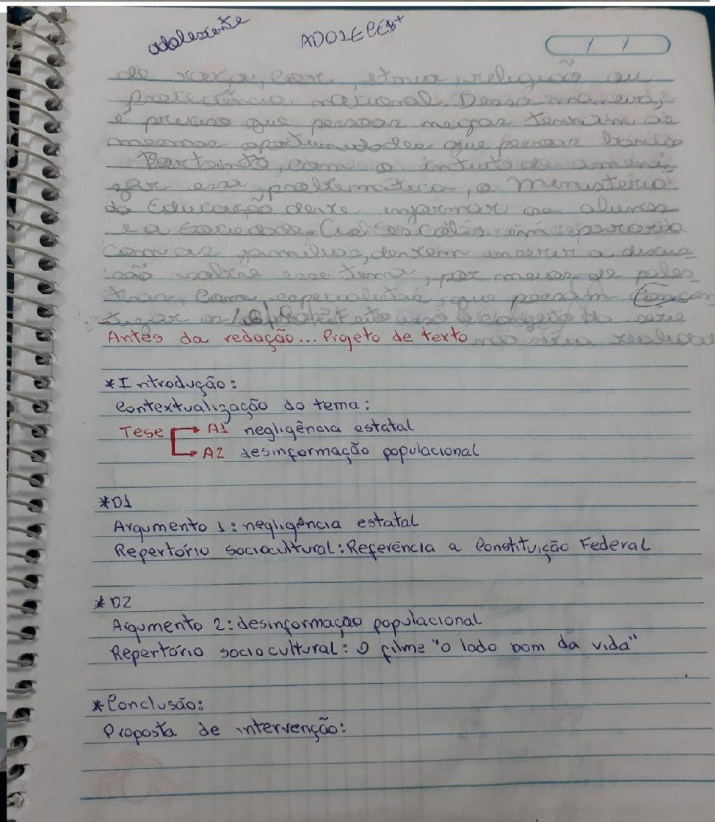 adolescente ADOLECEN+
/ /
de raça, cor, etnia religião ou
nacional. Dessa maneira,
é preciso que pessoas negas tenham as
mesmas oportunidades que pessoas
Portanto, com o intuito de ameni
zar esse problemática, o Ministério
da Educação deve informar os alunos
e a sociedade. escolas em parceria
com as famílias, devem inserir a discus
são sobre esse tema, por meios de pales
tras, com especialistas, que possam
Antes da redação... Projeto de texto
*Introdução:
Contextualização do tema:
Tese A1 negligência estatal
A2 desinformação populacional
*D1
Argumento 1: negligência estatal
Repertório sociocultural: Referência a Constituição Federal
*D2
Agumento 2: desinformação populacional
Repertório sociocultural: O filme "o lado bom da vida"
*Conclusão:
Proposta de intervenção: